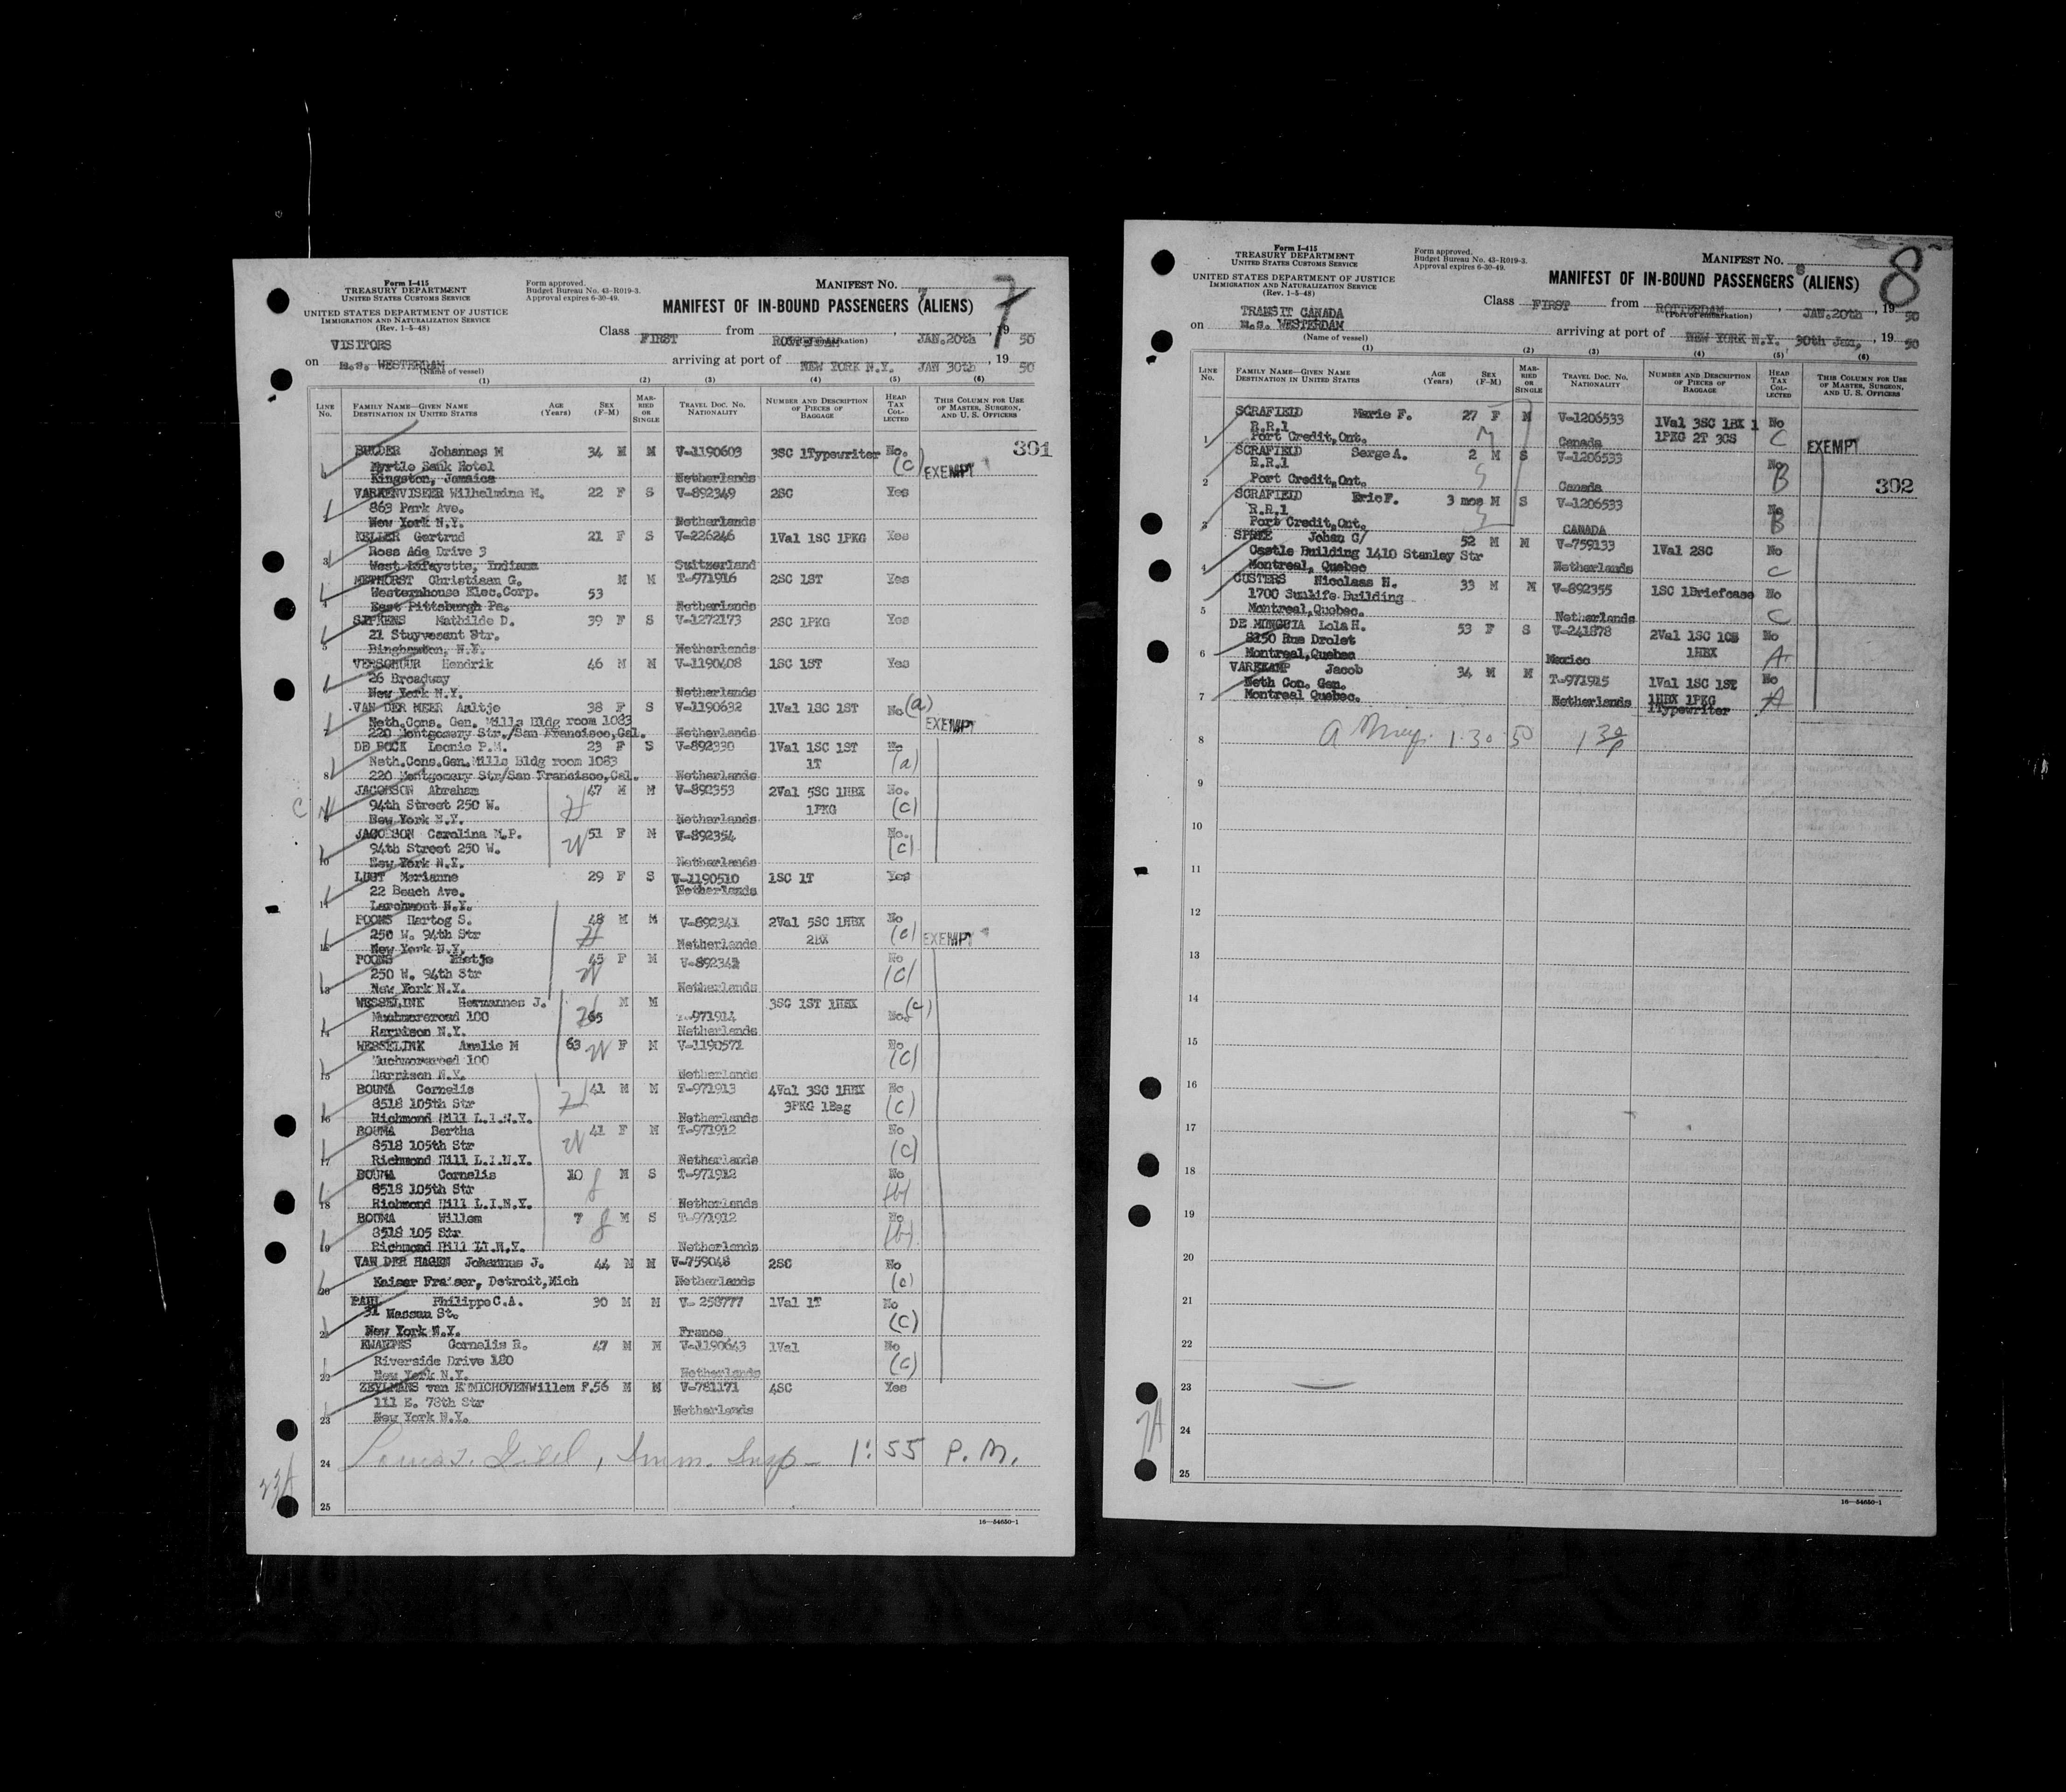 Form I-415
TREASURY DEPARTMENT
UNITED STATES CUSTOMS SERVICE
UNITED STATES DEPARTMENT OF JUSTICE
IMMIGRATION AND NATURALIZATION SERVICE
(Rev. 1-5-48)
Form approved.
Budget Bureau No. 43-R019-3.
Approval expires 6-30-49.
MANIFEST NO. 7
7
MANIFEST OF IN-BOUND PASSENGERS (ALIENS)
Class FIRST from ROTTERDAM, JAN.20th, 19 50
(Port of embarkation)
VISITORS
on M.S. WESTERDAM arriving at port of NEW YORK N.Y. JAN 30th, 19 50
(Name of vessel)
(1) (2) (3) (4) (5) (6)
LINE No. FAMILY NAME—GIVEN NAME DESTINATION IN UNITED STATES AGE (Years) SEX (F-M) MARRIED OR SINGLE TRAVEL DOC. NO. NATIONALITY NUMBER AND DESCRIPTION OF PIECES OF BAGGAGE HEAD TAX COLLECTED THIS COLUMN FOR USE OF MASTER, SURGEON, AND U. S. OFFICERS
Johannes M 34 M M V-1190603 3SC 1Typewriter No. 301
Myrtle Bank Hotel (c) EXEMPT
1 Kingston, Jamaica Netherlands
VARKENVISSER Wilhelmina M. 22 F S V-892349 2SC Yes
863 Park Ave.
2 New York N.Y. Netherlands
KELLER Gertrud 21 F S V-226246 1Val 1SC 1PKG Yes
Ross Ade Drive 3
3 West Lafayette, Indiana Switzerland
METHORST Christiaan G. M M T-971916 2SC 1ST Yes
Westernhouse Elec.Corp. 53
4 East Pittsburgh Pa. Netherlands
Mathilde D. 39 F S V-1272173 2SC 1PKG Yes
21 Stuyvesant Str.
5 Binghamton, N.Y. Netherlands
VERSCHUUR Hendrik 46 M M V-1190408 1SC 1ST Yes
26 Broadway
6 New York N.Y. Netherlands
VAN DER MEER Aaltje 38 F S V-1190632 1Val 1SC 1ST No (a)
Neth.Cons. Gen. Mills Bldg room 1083 EXEMPT
7 220 Montgomery Str./San Francisco,Cal. Netherlands
DE BOCK Leonie P.M. 23 F S V-892330 1Val 1SC 1ST No
Neth.Cons.Gen.Mills Bldg room 1083 1T (a)
8 220 Montgomery Str/San Francisco,Cal. Netherlands
C JACOBSON Abraham 47 M M V-892353 2Val 5SC 1HBX No.
94th Street 250 W. H 1PKG (c)
9 New York N.Y. Netherlands
JACOBSON Carolina M.P. 51 F M V-892354 No.
94th Street 250 W. W (c)
10 New York N.Y. Netherlands
LUST Marianne 29 F S V-1190510 1SC 1T Yes
22 Beach Ave. Netherlands
11 Larchmont N.Y.
POONS Hartog S. 48 M M V-892341 2Val 5SC 1HBX No
250 W. 94th Str H 2BX (c) EXEMPT
12 New York N.Y. Netherlands
POONS 45 F M V-892342 No
250 W. 94th Str W (c)
13 New York N.Y. Netherlands
WESSELINK Hermannes J. H M M 3SC 1ST 1HBX (c)
100 65 T-971914 No.
14 Harrison N.Y. Netherlands
WESSELINK Amalie M 63 W F M V-1190571 No
100 (c)
15 Harrison N.Y. Netherlands
BOUMA Cornelis 41 M M T-971913 4Val 3SC 1HBX No
8518 105th Str H 3PKG 1Bag (c)
16 Richmond Hill L.I.N.Y. Netherlands
BOUMA Bertha 41 F M T-971912 No
8518 105th Str W (c)
17 Richmond Hill L.I.N.Y. Netherlands
BOUMA Cornelis 10 M S T-971912 No
8518 105th Str (b)
18 Richmond Hill L.I.N.Y. Netherlands
BOUMA Willem 7 M S T-971912 No
8518 105 Str (b)
19 Richmond Hill LI.N.Y. Netherlands
VAN DER HAGEN Johannus J. 44 M M V-759048 2SC No
20 Kaiser Fraiser, Detroit,Mich Netherlands (c)
PAUL Philippe C.A. 30 M M V- 258777 1Val 1T No
31 Nassau St. (c)
21 New York N.Y. France
Cornelis R. 47 M M V-1190643 1Val No
Riverside Drive 180 (c)
22 New York N.Y. Netherlands
ZEYLMANS van EMMICHOVEN Willem F. 56 M M V-781171 4SC Yes
111 E. 78th Str
23 New York N.Y. Netherlands
24 Imm. Insp- 1:55 P.M.
25
23A
16—54650-1
Form I-415
TREASURY DEPARTMENT
UNITED STATES CUSTOMS SERVICE
UNITED STATES DEPARTMENT OF JUSTICE
IMMIGRATION AND NATURALIZATION SERVICE
(Rev. 1-5-48)
Form approved.
Budget Bureau No. 43-R019-3.
Approval expires 6-30-49.
MANIFEST NO. 8
8
MANIFEST OF IN-BOUND PASSENGERS (ALIENS)
Class FIRST from ROTTERDAM, JAN.20th, 19 50
(Port of embarkation)
TRANSIT CANADA
on M.S. WESTERDAM arriving at port of NEW YORK N.Y. 30th Jan, 19 50
(Name of vessel)
(1) (2) (3) (4) (5) (6)
LINE No. FAMILY NAME—GIVEN NAME DESTINATION IN UNITED STATES AGE (Years) SEX (F-M) MARRIED OR SINGLE TRAVEL DOC. NO. NATIONALITY NUMBER AND DESCRIPTION OF PIECES OF BAGGAGE HEAD TAX COLLECTED THIS COLUMN FOR USE OF MASTER, SURGEON, AND U. S. OFFICERS
SCRAFIELD Marie F. 27 F M V-1206533 1Val 3SC 1BX 1 No
R.R.1 1PKG 2T 3CS C
1 Port Credit,Ont. M Canada EXEMPT
SCRAFIELD Serge A. 2 M S V-1206533 No
R.R.1 B
2 Port Credit,Ont. S Canada 302
SCRAFIELD Eric F. 3 mos M S V-1206533 No
R.R.1 B
3 Port Credit,Ont. S CANADA
Johan G/ 52 M M V-759133 1Val 2SC No
Castle Building 1410 Stanley Str
4 Montreal, Quebec Netherlands C
CUSTERS Nicolaas H. 33 M M V-892355 1SC 1Briefcase No
1700 Sunlife Building
5 Montreal,Quebec. Netherlands C
DE MUNGUIA Lola H. 53 F S V-241878 2Val 1SC 1CS No
8150 Rue Drolet 1HBX
6 Montreal,Quebec Mexico A
VAREKAMP Jacob 34 M M T-971915 1Val 1SC 1ST No
Neth Con. Gen. 1HBX 1PKG
7 Montreal Quebec. Netherlands 1Typewriter A
8 1.30.50 1 30 P
9
10
11
12
13
14
15
16
17
18
19
20
21
22
23
24
25
7A
16—54650-1